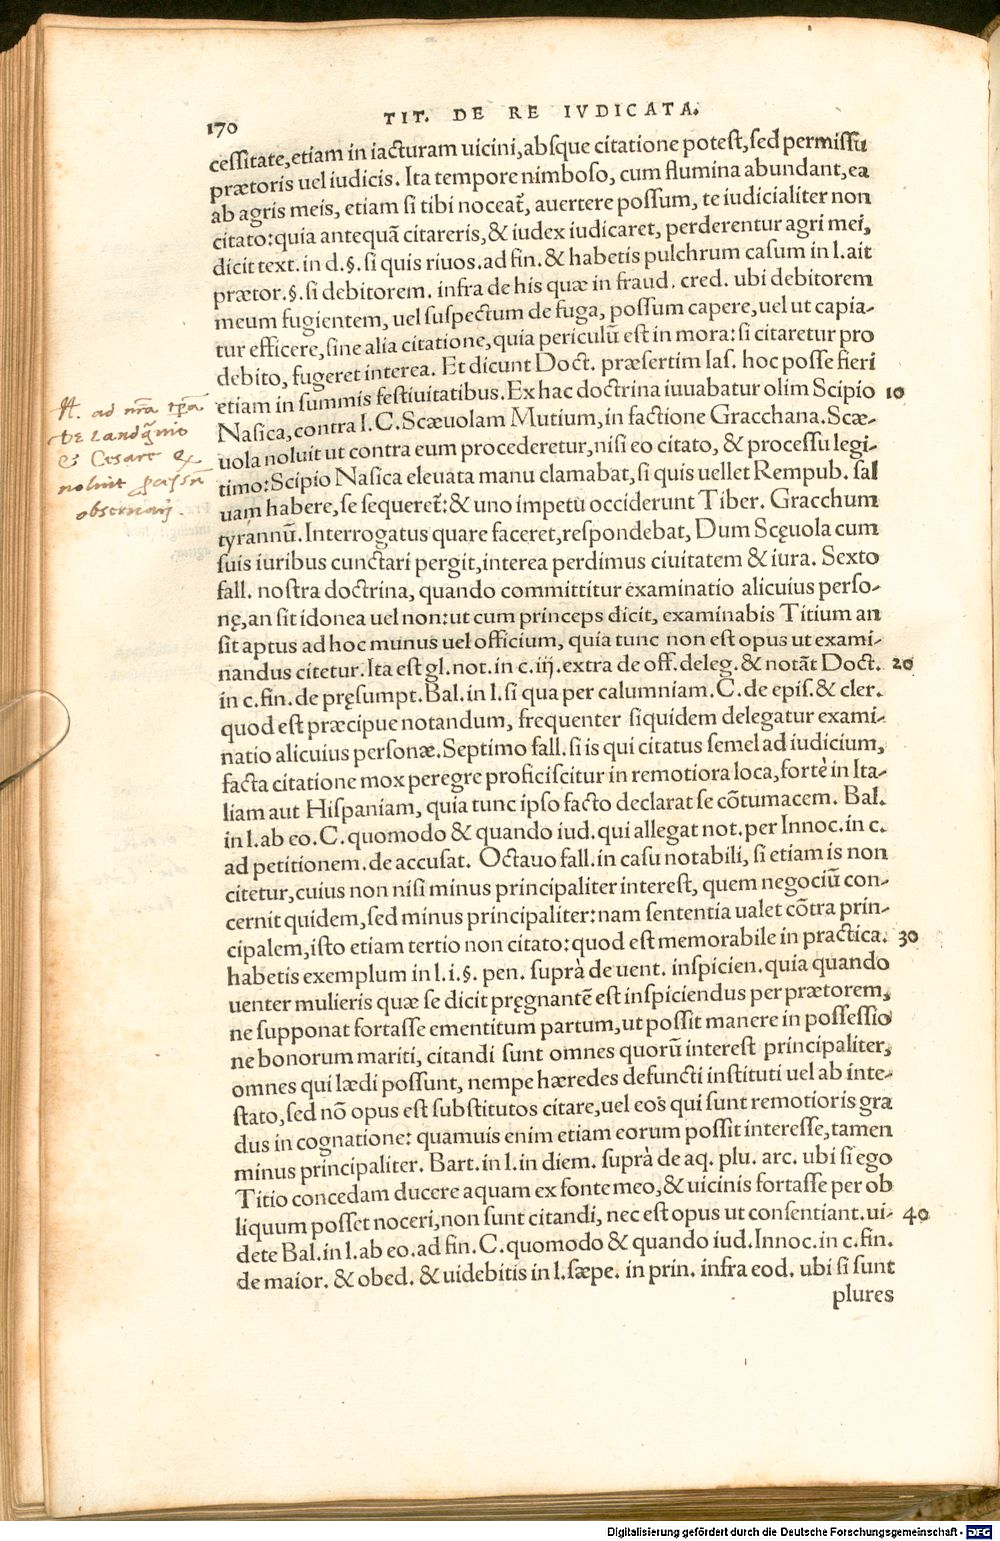 170
TIT. DE RE IVDICATA.
cessitate, etiam in iacturam uicini, absque citatione potest, sed permissu
prætoris uel iudicis. Ita tempore nimboso, cum flumina abundant, ea
ab agris meis, etiam si tibi noceat̃, auertere possum, te iudicialiter non
citato: quia antequã citareris, & iudex iudicaret, perderentur agri mei,
dicit text. in d. §. si quis riuos. ad fin. & habetis pulchrum casum in l. ait
prætor. §. si debitorem. infra de his quæ in fraud. cred. ubi debitorem
meum fugientem, uel suspectum de fuga, possum capere, uel ut capia-
tur efficere, sine alia citatione, quia periculũ est in mora: si citaretur pro
debito, fugeret interea. Et dicunt Doct. præsertim Ias. hoc posse fieri
etiam in summis festiuitatibus. Ex hac doctrina iuuabatur olim Scipio 10
Nasica, contra l. C. Scæuolam Mutium, in factione Gracchana. Scæ-
uola noluit ut contra eum procederetur, nisi eo citato, & processu legi-
timo: Scipio Nasica eleuata manu clamabat, si quis uellet Rempub. sal
uam habere, se sequeret̃: & uno impetu occiderunt Tiber. Gracchum
tyrannũ. Interrogatus quare faceret, respondebat, Dum Scęuola cum
suis iuribus cunctari pergit, interea perdimus ciuitatem & iura. Sexto
fall. nostra doctrina, quando committitur examinatio alicuius perso-
nę, an sit idonea uel non: ut cum princeps dicit, examinabis Titium an
sit aptus ad hoc munus uel officium, quia tunc non est opus ut exami-
nandus citetur. Ita est gl. not. in c. iij. extra de off. deleg. & notãt Doct. 20
in c. fin. de pręsumpt. Bal. in l. si qua per calumniam. C. de epis. & cler.
quod est præcipue notandum, frequenter siquidem delegatur exami-
natio alicuius personæ. Septimo fall. si is qui citatus semel ad iudicium,
facta citatione mox peregre proficiscitur in remotiora loca, fortè in Ita-
liam aut Hispaniam, quia tunc ipso facto declarat se cõtumacem. Bal.
in l. ab eo. C. quomodo & quando iud. qui allegat not. per Innoc. in c.
ad petitionem. de accusat. Octauo fall. in casu notabili, si etiam is non
citetur, cuius non nisi minus principaliter interest, quem negociũ con-
cernit quidem, sed minus principaliter: nam sententia ualet cõtra prin-
cipalem, isto etiam tertio non citato: quod est memorabile in practica. 30
habetis exemplum in l. i. §. pen. suprà de uent. inspicien. quia quando
uenter mulieris quæ se dicit pręgnantẽ est inspiciendus per prætorem,
ne supponat fortasse ementitum partum, ut possit manere in possessio
ne bonorum mariti, citandi sunt omnes quorũ interest principaliter,
omnes qui lædi possunt, nempe hæredes defuncti instituti uel ab inte-
stato, sed nõ opus est substitutos citare, uel eos qui sunt remotioris gra
dus in cognatione: quamuis enim etiam eorum possit interesse, tamen
minus principaliter. Bart. in l. in diem. suprà de aq. plu. arc. ubi si ego
Titio concedam ducere aquam ex fonte meo, & uicinis fortasse per ob
liquum posset noceri, non sunt citandi, nec est opus ut consentiant. ui- 40
dete Bal. in l. ab eo. ad fin. C. quomodo & quando iud. Innoc. in c. fin.
de maior. & obed. & uidebitis in l. sæpe. in prin. infra eod. ubi si sunt
plures
ad nr̃a
de
& Cesare
noluit
Digitalisierung gefördert durch die Deutsche Forschungsgemeinschaft - DFG